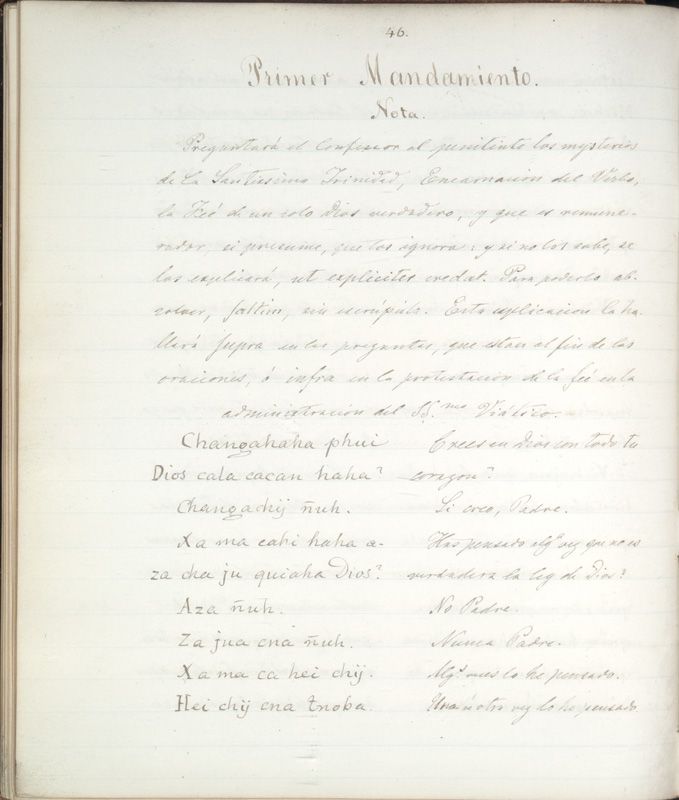 46.
Primer Mandamiento.
Nota.
Preguntará el Confessor al penitente los mysterios
de la Santissima Trinidad, Encarnacion del Verbo,
la Feé de un solo Dios verdadero, y que es remune-
rador, si presume, que los ignora: y si no los sabe, se
los explicará, ut explicites credat. Para poderlo ab-
solver, saltim, sin escrúpulo. Esta explicacion la ha-
llará supra en las preguntas, que estan al fin de las
oraciones, ó infra en la protestacion de la feé en la
administración del SS.mo Viático.
Changahaha phui Crees en Dios con todo tu
Dios cala cacan haha? corazon?
Changachij ñuh. Si creo, Padre.
Xa ma cahi haha a- Has pensado alg.a vez que no es
za cha ju quiaha Dios? verdadera la ley de Dios?
Aza ñuh. No Padre.
Za jua cna ñuh. Nunca Padre.
Xa ma ca hei chij. Alg.s veces lo he pensado.
Hei chij cna tnoba. Una ú otra vez lo he pensado.